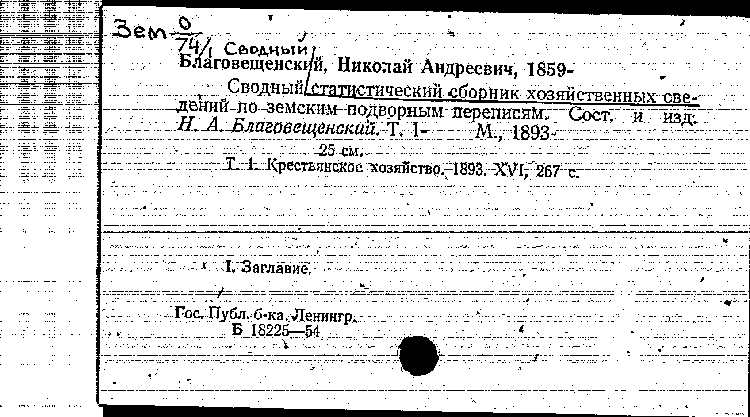 Зем 0
74/1 Сводный
Благовещенский, Николай Андреевич, 1859-
Сводный/статистический сборник хозяйственных све-
дений по земским подворным переписям. Сост. и изд.
Н. А. Благовещенский. Т. 1- М., 1893-
25 см.
Т. 1. Крестьянское хозяйство. 1893. XVI, 267 с.
I. Заглавие.
Гос. Публ. б-ка. Ленингр.
Б 18225—54